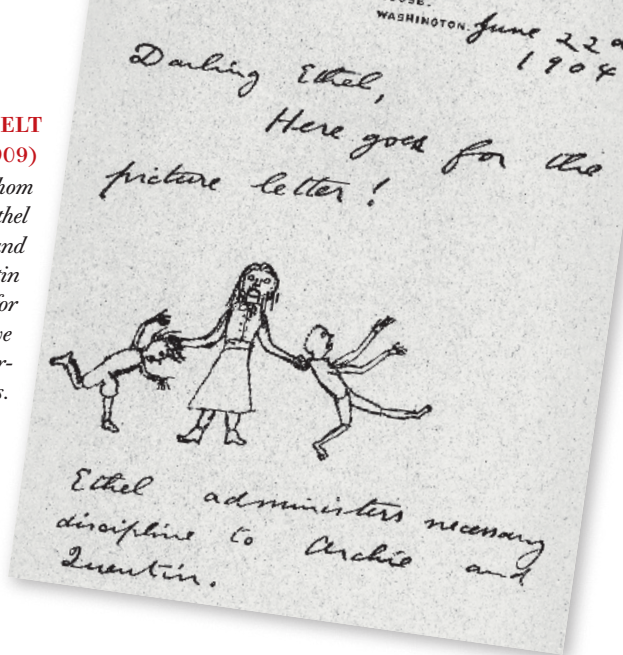 ELT
009)
hom
thel
and
tin
for
ve
r-
s.
WASHINGTON.
June 22
1904
Darling Ethel,
Here goes for the
picture letter!
Ethel administers necessary
discipline to Archie and
Quentin.